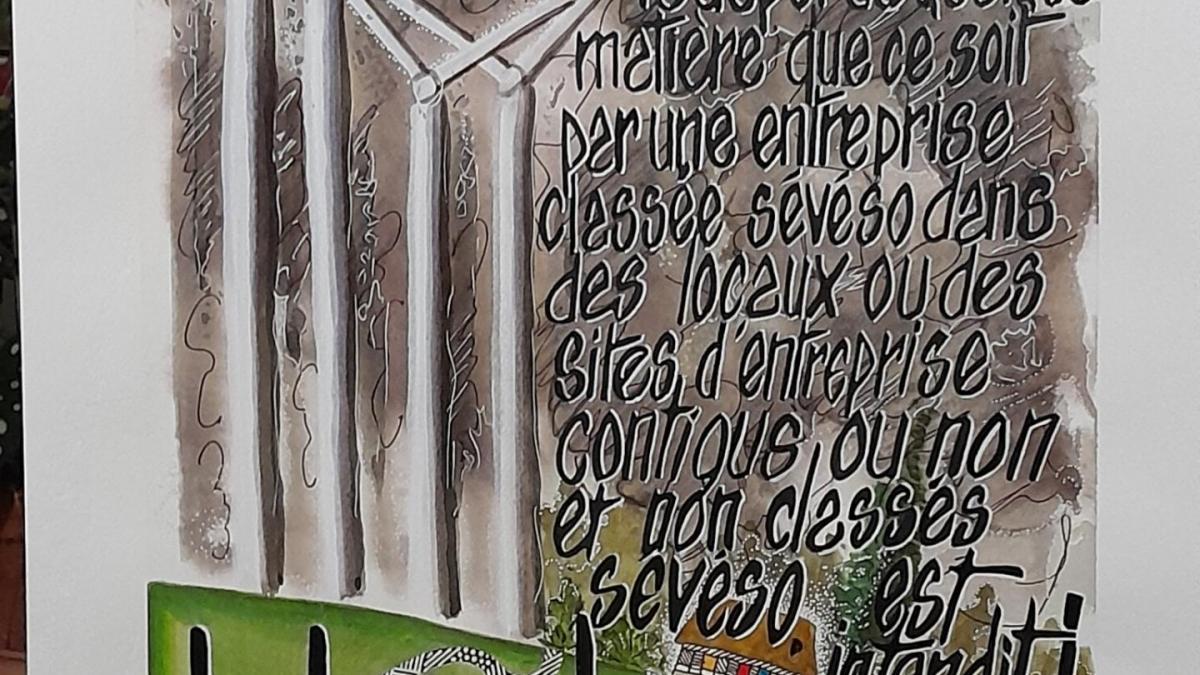 matière que ce soit
par une entreprise
classée sévéso dans
des locaux ou des
sites, d'entreprise
contigus, ou non
et non classés
sévéso, est
interdit !